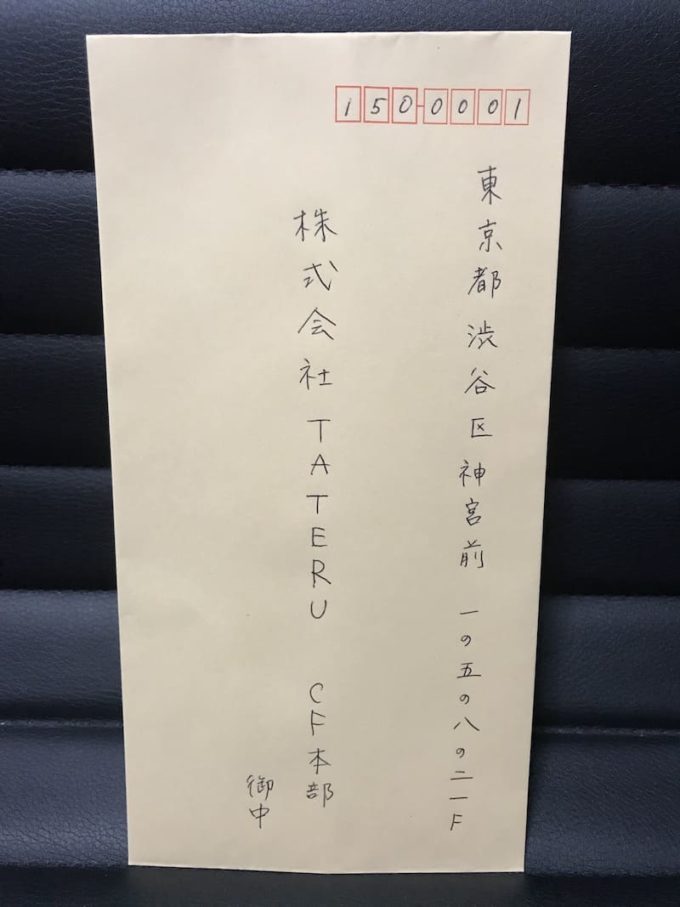 1500001
東京都渋谷区神宮前 一の五の八の二一F
株式会社TATERU CF本部
御中